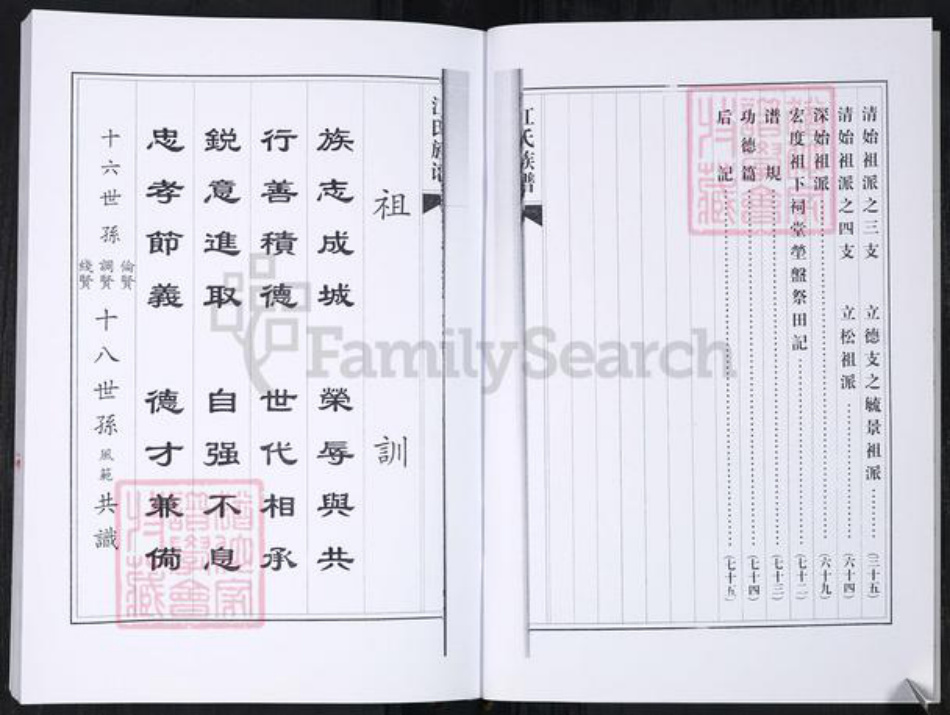 清始祖派之三支 立德支之毓景祖派 (三十五)
清始祖派之四支 立松祖派 (六十四)
深始祖派 (六十九)
宏度祖下祠堂塋盤祭田記 (七十二)
谱規 (七十三)
功德篇 (七十四)
后記 (七十五)
江氏族譜
江氏族譜
祖訓
族志成城 榮辱與共
行善積德 世代相承
鋭意進取 自强不息
忠孝節義 德才兼備
十六世孫 倫賢 調賢 綫賢 十八世孫 風範 共識
FamilySearch